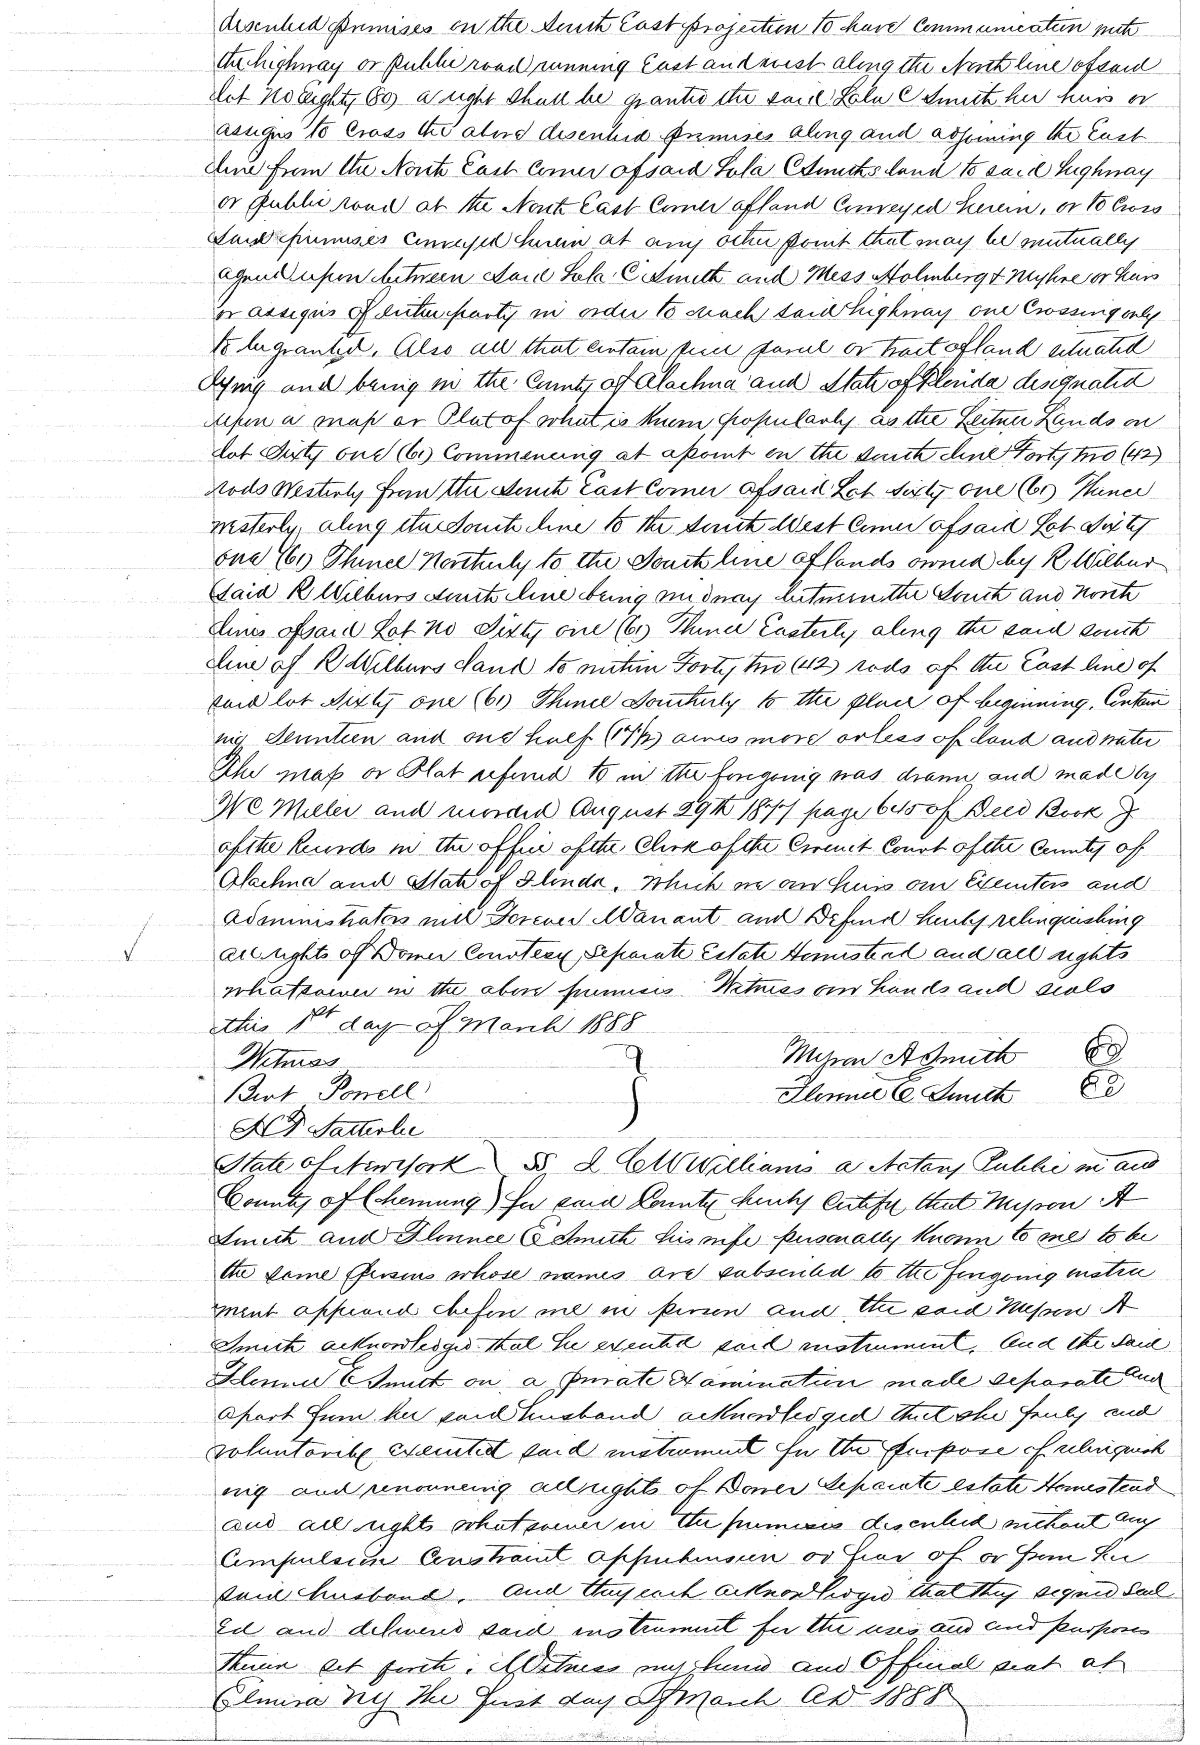 described premises on the South East projection to have communication with
the highway or public road running East and west along the North line of said
Lot No Eighty (80) a right shall be granted the said Lola C Smith her heirs or
assigns to cross the above described premises along and adjoining the East
line from the North East corner of said Lola C Smiths land to said highway
or public road at the North East Corner of land conveyed herein, or to cross
said premises conveyed herein at any other point that may be mutually
agreed upon between said Lola C Smith and Mess Holmberg & Myhre or heirs
or assigns of either party in order to reach said highway one crossing only
to be granted. Also all that certain piece parcel or tract of land situated
lying and being in the County of Alachua and State of Florida designated
upon a map or Plat of what is known popularly as the Leitner Lands on
Lot Sixty one (61) Commencing at a point on the south line Forty two (42)
rods Westerly from the South East Corner of said Lot Sixty one (61) Thence
westerly along the South line to the South West Corner of said Lot Sixty
one (61) Thence Northerly to the South line of lands owned by R Wilbur
said R Wilburs south line being midway between the South and North
lines of said Lot No Sixty one (61) Thence Easterly along the said south
line of R Wilburs land to within Forty two (42) rods of the East line of
said lot Sixty one (61) Thence Southerly to the place of beginning. Contain
ing Seventeen and one half (17½) acres more or less of land and water
The map or Plat referred to in the foregoing was drawn and made by
W C Miller and recorded August 29th 1877 page 645 of Deed Book J
of the Records in the office of the Clerk of the Circuit Court of the County of
Alachua and State of Florida. Which we our heirs our Executors and
administrators will Forever Warrant and Defend hereby relinquishing
all rights of Dower Courtesy Separate Estate Homestead and all rights
whatsoever in the above premises Witness our hands and seals
this 1st day of March 1888
Witness Myron A Smith
Bert Powell Florence E Smith
Satterlee
State of New York } SS I C W Williams a Notary Public in and
County of Chemung } for said County hereby certify that Myron A
Smith and Florence E Smith his wife personally known to me to be
the same persons whose names are subscribed to the foregoing instru
ment appeared before me in person and the said Myron A
Smith acknowledged that he executed said instrument. And the said
Florence E Smith on a private examination made separate and
apart from her said husband acknowledged that she freely and
voluntarily executed said instrument for the purpose of relinquish
ing and renouncing all rights of Dower Separate estate Homestead
and all rights whatsoever in the premises described without any
Compulsion Constraint apprehension or fear of or from her
said husband. And they each acknowledged that they signed seal
ed and delivered said instrument for the uses and and purposes
therein set forth. Witness my hand and Official seal at
Elmira NY the first day of March AD 1888